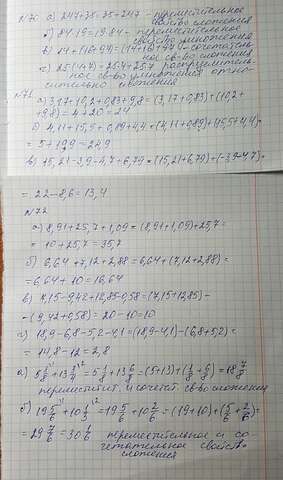 №70. а) 247+35=35+247 - переместительное
свойство сложения
б) 84·19=19·84 - переместительное
свойство умножения
в) 14+(16+44)=(14+16)+44 - сочетатель-
ное св-во сложения
г) 25(4+7)=25·4+25·7 распределитель-
ное св-во умножения отно-
сительно сложения
№71
а) 3,17+10,2+0,83+9,8=(3,17+0,83)+(10,2+
+9,8)=4+20=24
б) 4,11+15,5+0,89+4,4=(4,11+0,89)+(15,5+4,4)=
=5+19,9=24,9
в) 15,21-3,9-4,7+6,79=(15,21+6,79)+(-3,9-4,7)=
=22-8,6=13,4
№72
а) 8,91+25,7+1,09=(8,91+1,09)+25,7=
=10+25,7=35,7
б) 6,64+7,12+2,88=6,64+(7,12+2,88)=
=6,64+10=16,64
в) 7,15-9,42+12,85-0,58=(7,15+12,85)-
-(9,42+0,58)=20-10=10
г) 18,9-6,8-5,2-4,1=(18,9-4,1)-(6,8+5,2)=
=14,8-12=2,8
а) 5 1/8+13 3/4=5 1/8+13 6/8=(5+13)+(1/8+6/8)=18 7/8
переместит. и сочет. св-во сложения
б) 19 5/6+10 1/3=19 5/6+10 2/6=(19+10)+(5/6+2/6)=
=29 7/6=30 1/6 переместительное и со-
четательное свойство
сложения